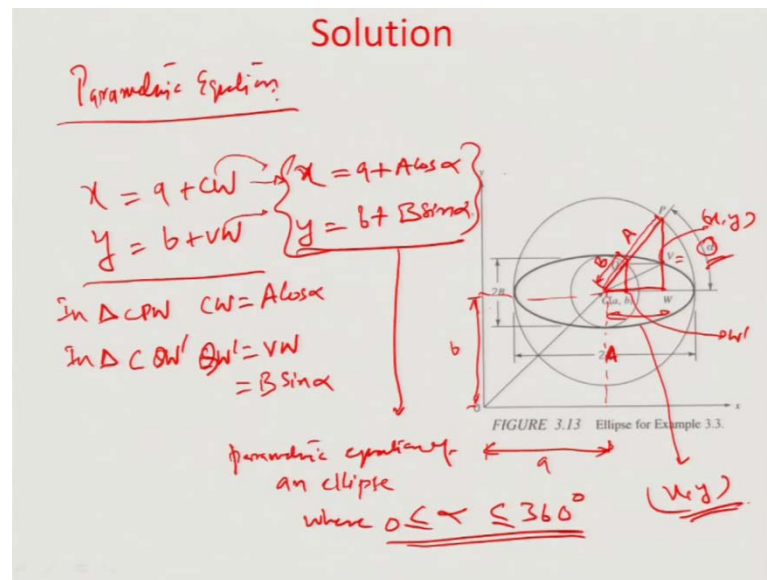 Solution
Parametric Equation
x = a + CW → x = a + A cos α
y = b + VW y = b + B sin α
In Δ CPW CW = A cos α
In Δ C QW' QW' = VW
= B sin α
parametric equation of
an ellipse
where 0 ≤ α ≤ 360°
y
P
(x, y)
A
α
B
V =
2B
C(a, b)
W
QW'
b
2A
0
x
FIGURE 3.13 Ellipse for Example 3.3.
a
(x, y)